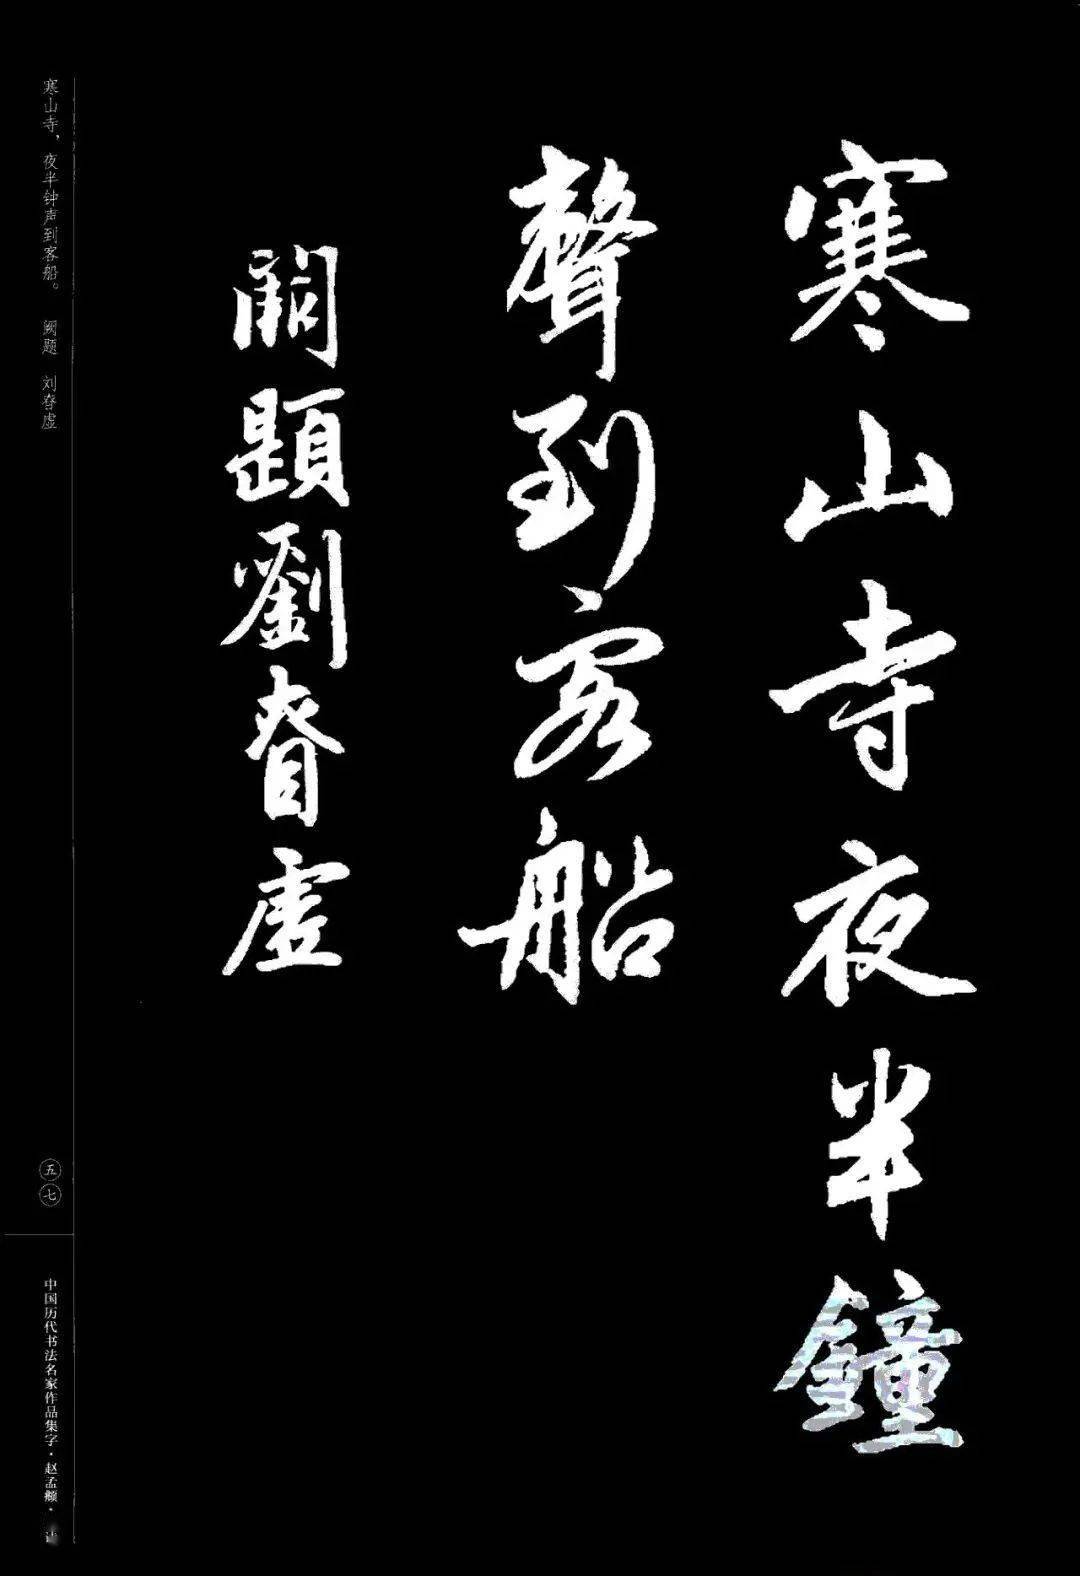 寒山寺夜半鐘
聲到客船
闕題劉眘虛
寒山寺，夜半钟声到客船。 阙题 刘眘虚
五七
中国历代书法名家作品集字·赵孟頫·